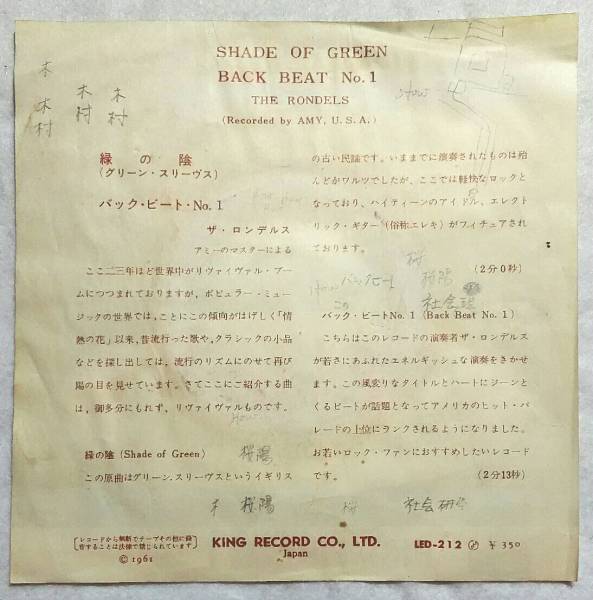 SHADE OF GREEN
BACK BEAT No.1
THE RONDELS
(Recorded by AMY, U.S.A.)
木
木村
木村
木村
show
緑の陰
(グリーン・スリーヴス)
バック・ビート・No.1
ザ・ロンデルス
アミーのマスターによる
ここ二三年ほど世界中がリヴァイヴァル・ブー
ムにつつまれておりますが、ポピュラー・ミュー
ジックの世界では、ことにこの傾向がはげしく「情
熱の花」以来、昔流行った歌や、クラシックの小品
などを探し出しては、流行のリズムにのせて再び
陽の目を見せています。さてここにご紹介する曲
は、御多分にもれず、リヴァイヴァルものです。
緑の陰 (Shade of Green)
桜陽
この原曲はグリーン.スリーヴスというイギリス
の古い民謡です。いままでに演奏されたものは殆
んどがワルツでしたが、ここでは軽快なロックと
なっており、ハイティーンのアイドル、エレクト
リック・ギター (俗称エレキ) がフィチュアされ
ております。
(2分0秒)
桜
バックビート
この
社会
バック・ビートNo.1 (Back Beat No.1)
こちらはこのレコードの演奏者ザ・ロンデルス
が若さにあふれたエネルギッシュな演奏をきかせ
ます。この風変りなタイトルとハートにジーンと
くるビートが話題となってアメリカのヒット・パ
レードの上位にランクされるようになりました。
お若いロック・ファンにおすすめしたいレコード
です。
(2分13秒)
木 桜陽 桜 社会研
[レコードから無断でテープその他に録
音することは法律で禁じられています]
© 1961
KING RECORD CO., LTD.
Japan
LED-212 ¥350